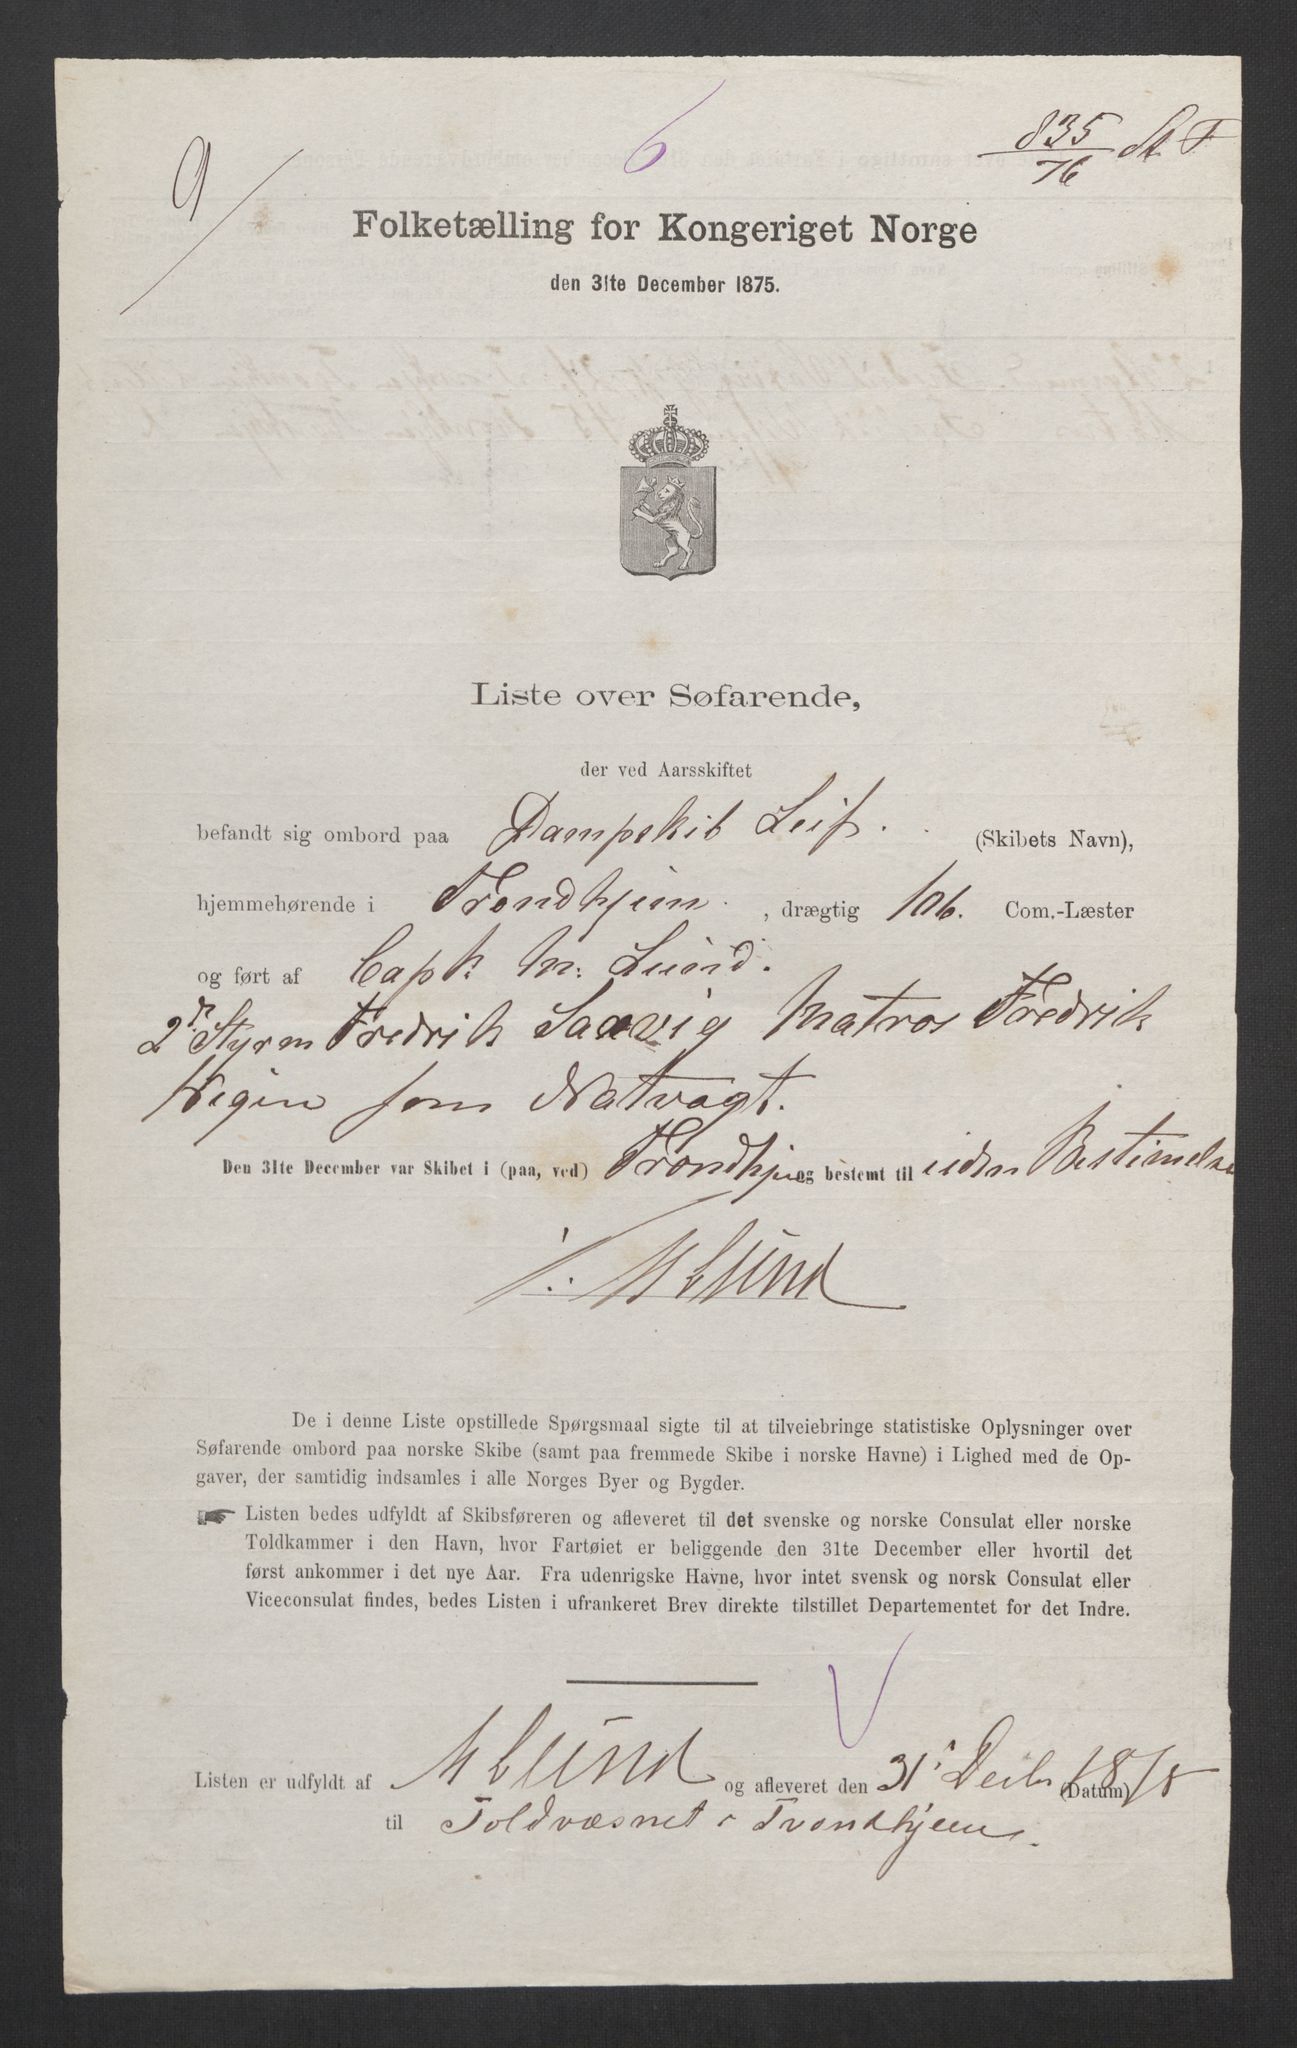 9
6
835/76 St. F
Folketælling for Kongeriget Norge
den 31te December 1875.
Liste over Søfarende,
der ved Aarsskiftet
befandt sig ombord paa Dampskib Leif. (Skibets Navn),
hjemmehørende i Trondhjem. , drægtig 106. Com.-Læster
og ført af Capt. M: Lund.
2n Styrm Fredrik Saxvig Matros Fredrik
Wigen som Natvagt.
Den 31te December var Skibet i (paa, ved) Trondhjem og bestemt til uden Bestemelse
M Lund
De i denne Liste opstillede Spørgsmaal sigte til at tilveiebringe statistiske Oplysninger over
Søfarende ombord paa norske Skibe (samt paa fremmede Skibe i norske Havne) i Lighed med de Op-
gaver, der samtidig indsamles i alle Norges Byer og Bygder.
Listen bedes udfyldt af Skibsføreren og afleveret til det svenske og norske Consulat eller norske
Toldkammer i den Havn, hvor Fartøiet er beliggende den 31te December eller hvortil det
først ankommer i det nye Aar. Fra udenrigske Havne, hvor intet svensk og norsk Consulat eller
Viceconsulat findes, bedes Listen i ufrankeret Brev direkte tilstillet Departementet for det Indre.
Listen er udfyldt af M Lund og afleveret den 31' Decbr 1875 (Datum)
til Toldvæsnet i Trondhjem.